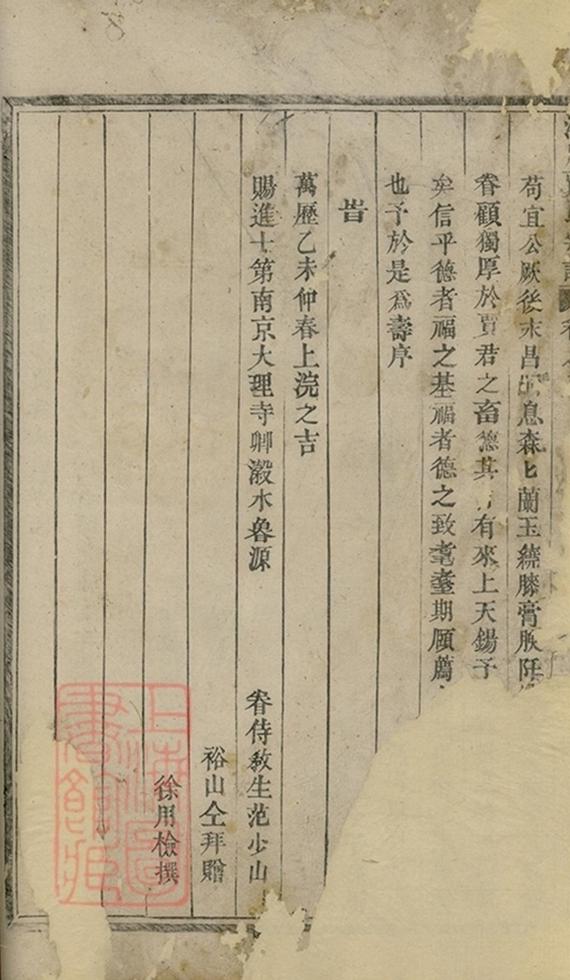 苟宜公厥後末昌息森匕蘭玉繞膝膏腴阡
眷顧獨厚於賈君之畜德其有來上天錫予
矣信乎德者福之基福者德之致耄耋期頤薦
也予於是為壽序
旹
萬歷乙未仲春上浣之吉
賜進士第南京大理寺卿瀫水魯源
眷侍教生范少山
裕山仝拜贈
徐用檢撰
上海圖書館藏